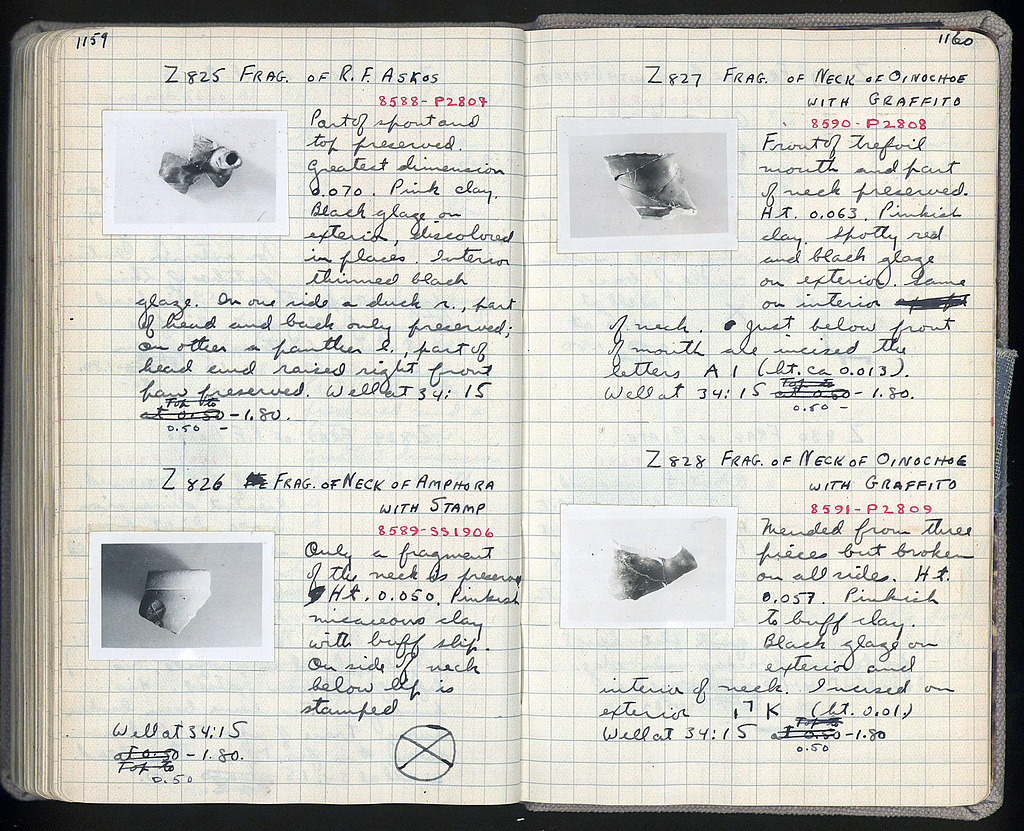 1159
Z 825 FRAG. OF R.F. ASKOS
8588-P2807
Part of spout and
top preserved.
Greatest dimension
0.070. Pink clay.
Black glaze on
exterior, discolored
in places. Interior
thinned black
glaze. On one side a duck r., part
of head and back only preserved;
on other a panther l., part of
head and raised right front
paw preserved. Well at 34:15
Top to
at 0.50 -1.80.
0.50 -
Z 826 FRAG. OF NECK OF AMPHORA
WITH STAMP
8589-SS1906
Only a fragment
of the neck is preserved
Ht. 0.050. Pinkish
micaceous clay
with buff slip.
On side of neck
below lip is
stamped
Well at 34:15
at 0.50 -1.80.
Top to
0.50
1160
Z 827 FRAG. OF NECK OF OINOCHOE
WITH GRAFFITO
8590-P2808
Front of trefoil
mouth and part
of neck preserved.
Ht. 0.063. Pinkish
clay. Spotty red
and black glaze
on exterior. Same
on interior
of neck. Just below front
of mouth are incised the
letters A I (ht. ca 0.013).
Well at 34:15 Top to
at 0.50 -1.80.
0.50 -
Z 828 FRAG. OF NECK OF OINOCHOE
WITH GRAFFITO
8591-P2809
Mended from three
pieces but broken
on all sides. Ht.
0.057. Pinkish
to buff clay.
Black glaze on
exterior and
interior of neck. Incised on
exterior K (ht. 0.01)
Well at 34:15 Top to
at 0.50 -1.80
0.50